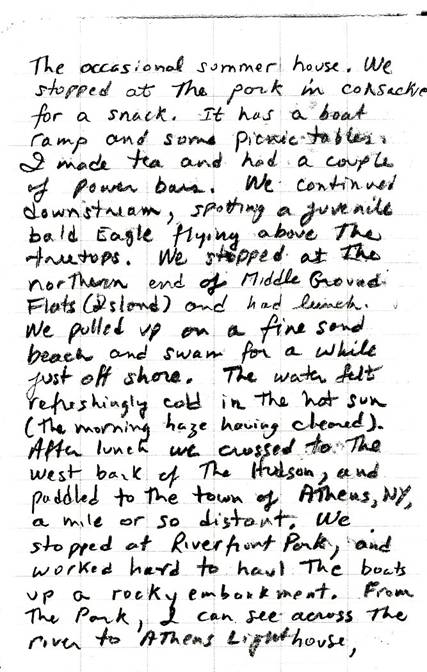 The occasional summer house. We
stopped at The park in coxsackie
for a snack. It has a boat
ramp and some picnic tables.
I made tea and had a couple
of power bars. We continued
downstream, spotting a juvenile
bald Eagle flying above The
treetops. We stopped at The
northern end of Middle Ground
Flats (Island) and had lunch.
We pulled up on a fine sand
beach and swam for a while
just off shore. The water felt
refreshingly cold in the hot sun
(The morning haze having cleared).
After lunch we crossed to The
west bank of The Hudson, and
paddled to the town of Athens, NY,
a mile or so distant. We
stopped at Riverfront Park, and
worked hard to haul The boats
up a rocky embankment. From
The Park, I can see across The
river to Athens Lighthouse,